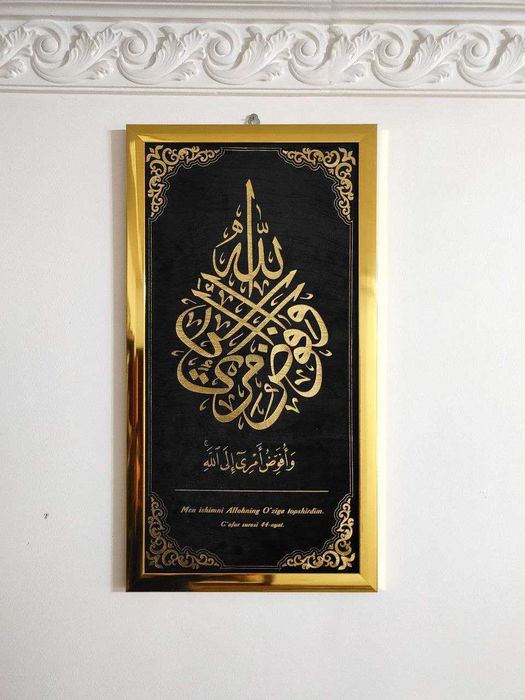 وأفوض أمري إلى الله
وَأُفَوِّضُ أَمْرِيٓ إِلَى ٱللَّهِۚ
Men ishimni Allohning O'ziga topshirdim.
G'ofur surasi 44-oyat.